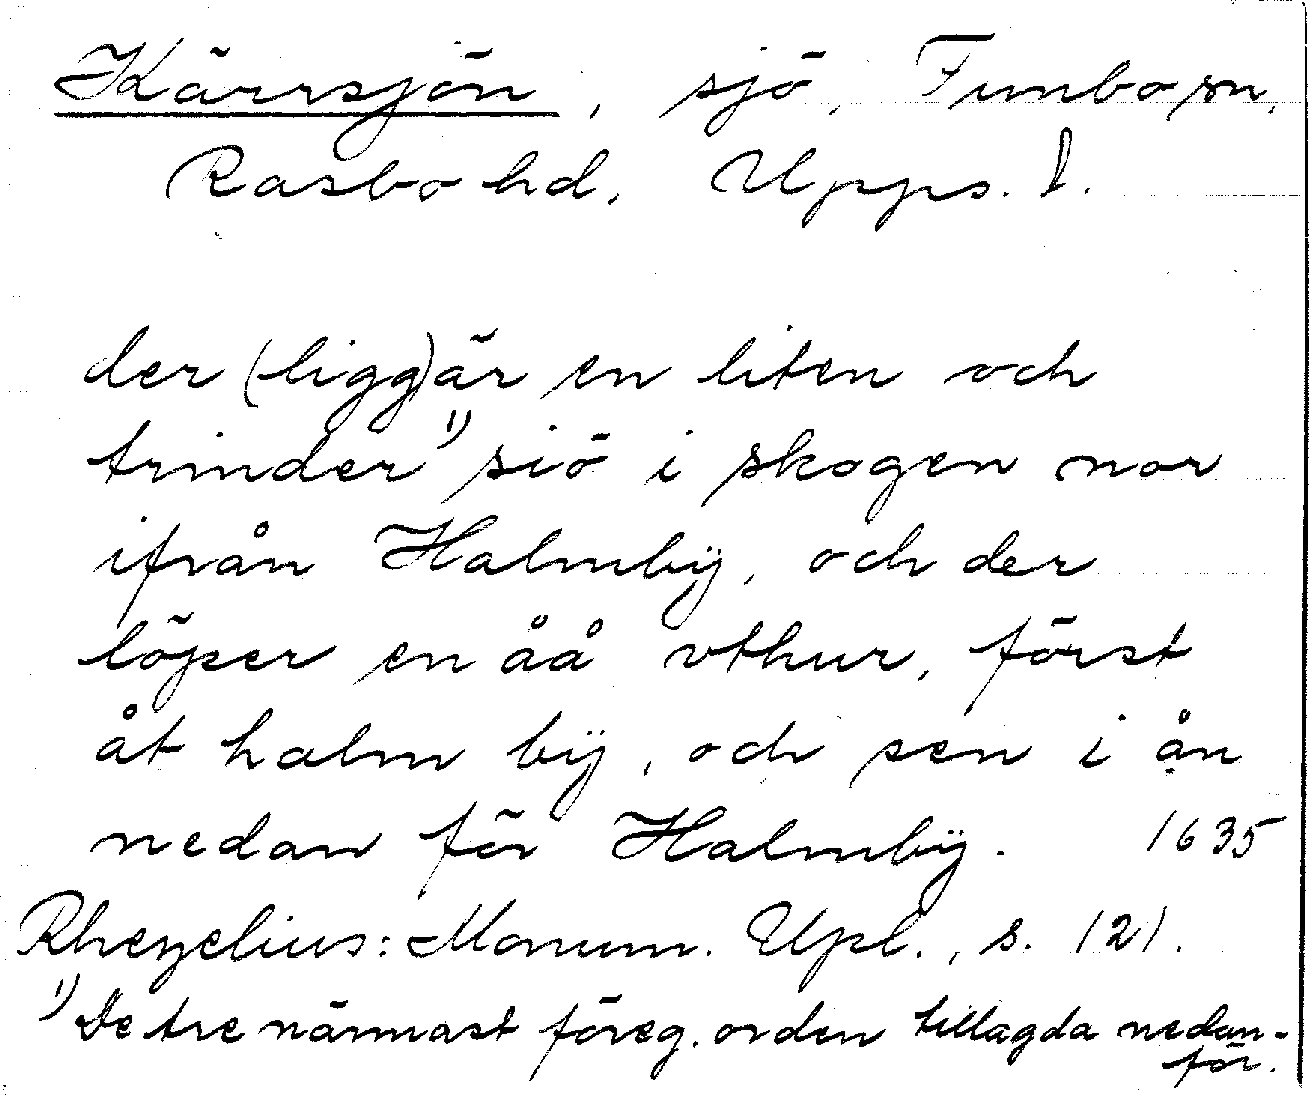 Kärrsjön, sjö, Funbo sn,
Rasbo hd, Upps. l.
der (ligg) är en liten och
trinder ¹⁾ siö i skogen nor
ifrån Halmbÿ, och der
löper en åå vthur, först
åt halm bÿ, och sen i ån
nedan för Halmbÿ. 1635
Rhezelius: Monum. Upl., s. 121.
¹⁾ De tre närmast föreg. orden tillagda nedan-
för.